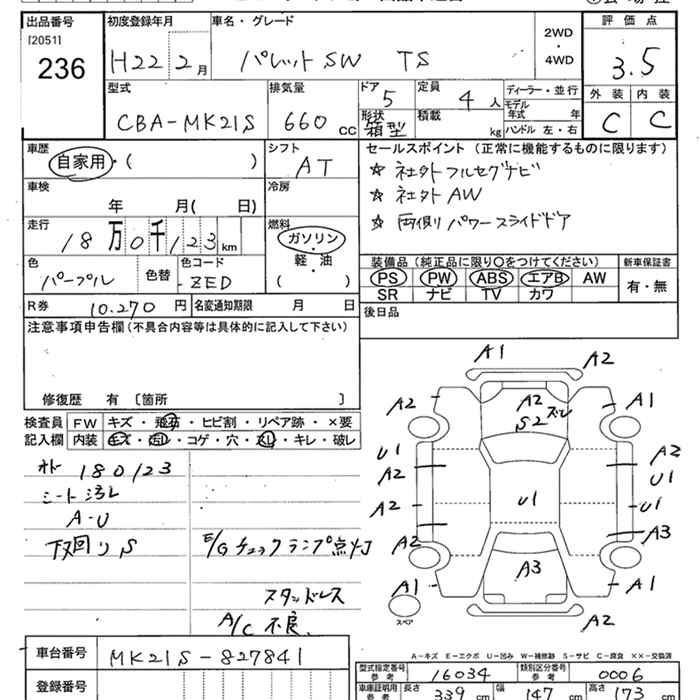 出品番号 初度登録年月 車名・グレード 2WD ・ 4WD 評価点
[2051]
236 H22 2月 パレットSW TS 3.5
型式 排気量 ドア 5 定員 4人 ディーラー・並行 外装 内装
CBA-MK21S 660 CC 形状 箱型 積載 kg モデル年式 年 C C
ハンドル 左・右
車歴 シフト セールスポイント (正常に機能するものに限ります)
自家用・( ) AT ☆ 社外フルセグナビ
車検 冷房 ☆ 社外AW
年 月( 日) ☆ 両側パワースライドドア
走行 燃料
18万0千123km ガソリン・軽・油 ( )
装備品 (純正品に限り○をつけてください) 新車保証書
色 色替 色コード PS PW ABS エアB AW 有・無
パープル ZED SR ナビ TV カワ
R券 10.270円 名変通知期限 月 日 後日品
注意事項申告欄 (不具合内容等は具体的に記入して下さい)
修復歴 有 [箇所 ]
検査員 FW キズ・飛石・ヒビ割・リペア跡・×要
記入欄 内装 キズ・汚れ・コゲ・穴・スレ・キレ・破レ
オド 180123
シート汚れ
A-U
下回りS E/Gチェックランプ点灯
スタッドレス
A/C不良
A1 A2
A2 A2 ズレ A1
S2
U1 A2
A2 U1
A2 U1 U1
A2 A3
A1 A3 A1
スペア A2
A-キズ E-エクボ U-凹み W-補修跡 S-サビ C-腐食 ××-交換済
車台番号 MK21S-827841 型式指定番号 参考 16034 類別区分番号 参考 0006
登録番号 車庫証明用 参考 長さ 339 cm 幅 147 cm 高さ 173 cm